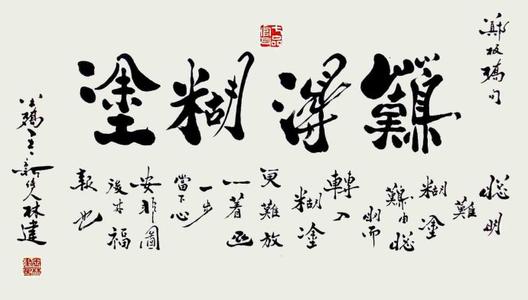 鄭板橋句
難得糊塗
聰明
難
糊塗
難由聰
明而
轉入
糊塗
更難放
一著退
一步
當下心
安非圖
後來福
報也
林建